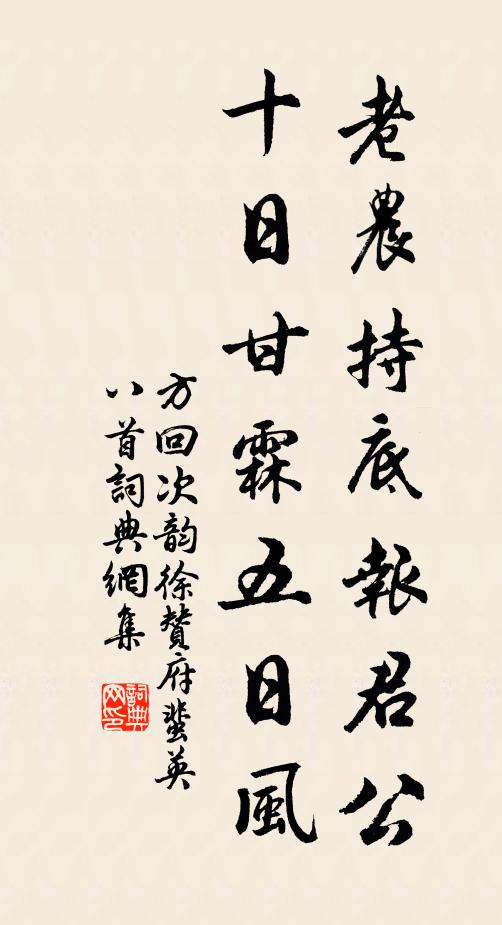 老農持底報君公
十日甘霖五日風
方回次韵徐贊府蜚英
八首詞典網集
詞典
网印